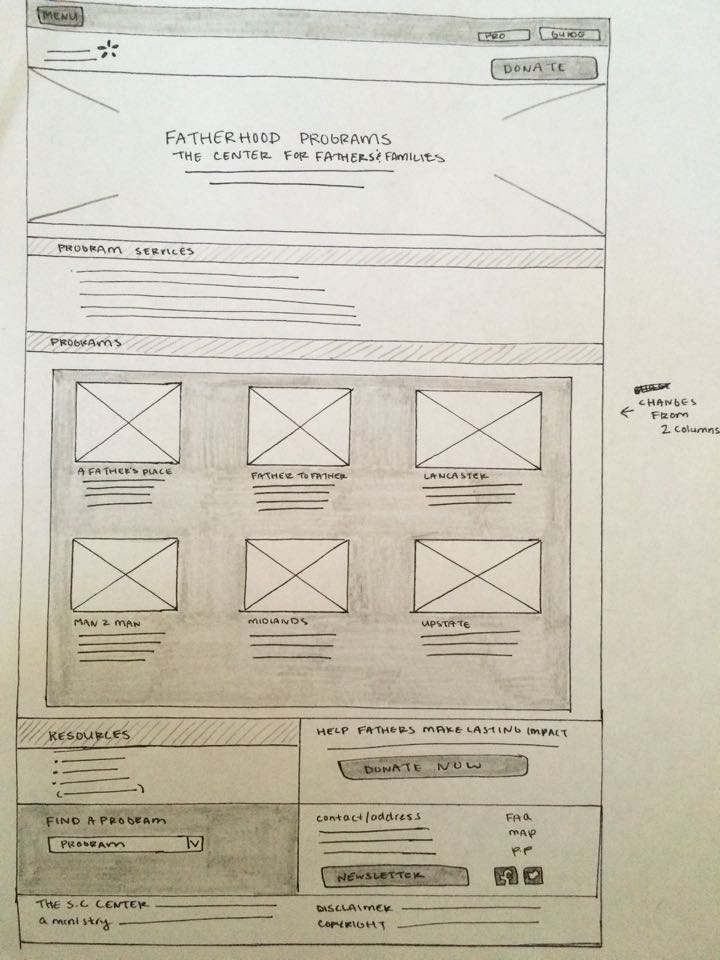 MENU
PRO
GUIDE
DONATE
FATHERHOOD PROGRAMS
THE CENTER FOR FATHERS & FAMILIES
PROGRAM SERVICES
PROGRAMS
CHANGES
FROM
2 columns
A FATHER'S PLACE
FATHER TO FATHER
LANCASTER
MAN 2 MAN
MIDLANDS
UPSTATE
RESOURCES
HELP FATHERS MAKE LASTING IMPACT
DONATE NOW
FIND A PROGRAM
PROGRAM
contact/address
FAQ
MAP
P.P
NEWSLETTER
THE S.C CENTER
a ministry
DISCLAIMER
COPYRIGHT